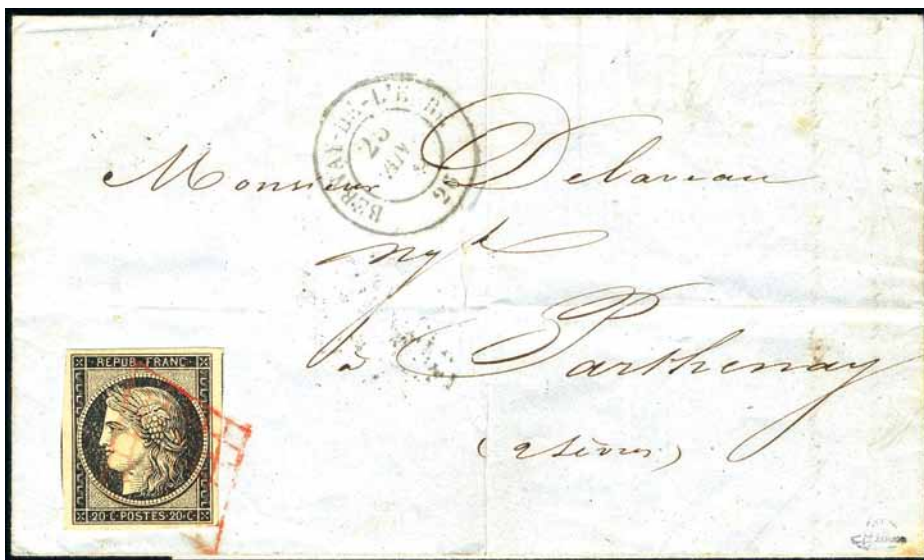 BERNAY-DE-L'EURE
25
JANV
26
Monsieur Delaveau
Ngt
à Parthenay
(2 Sèvres)
REPUB. FRANC.
20 C. POSTES 20 C.